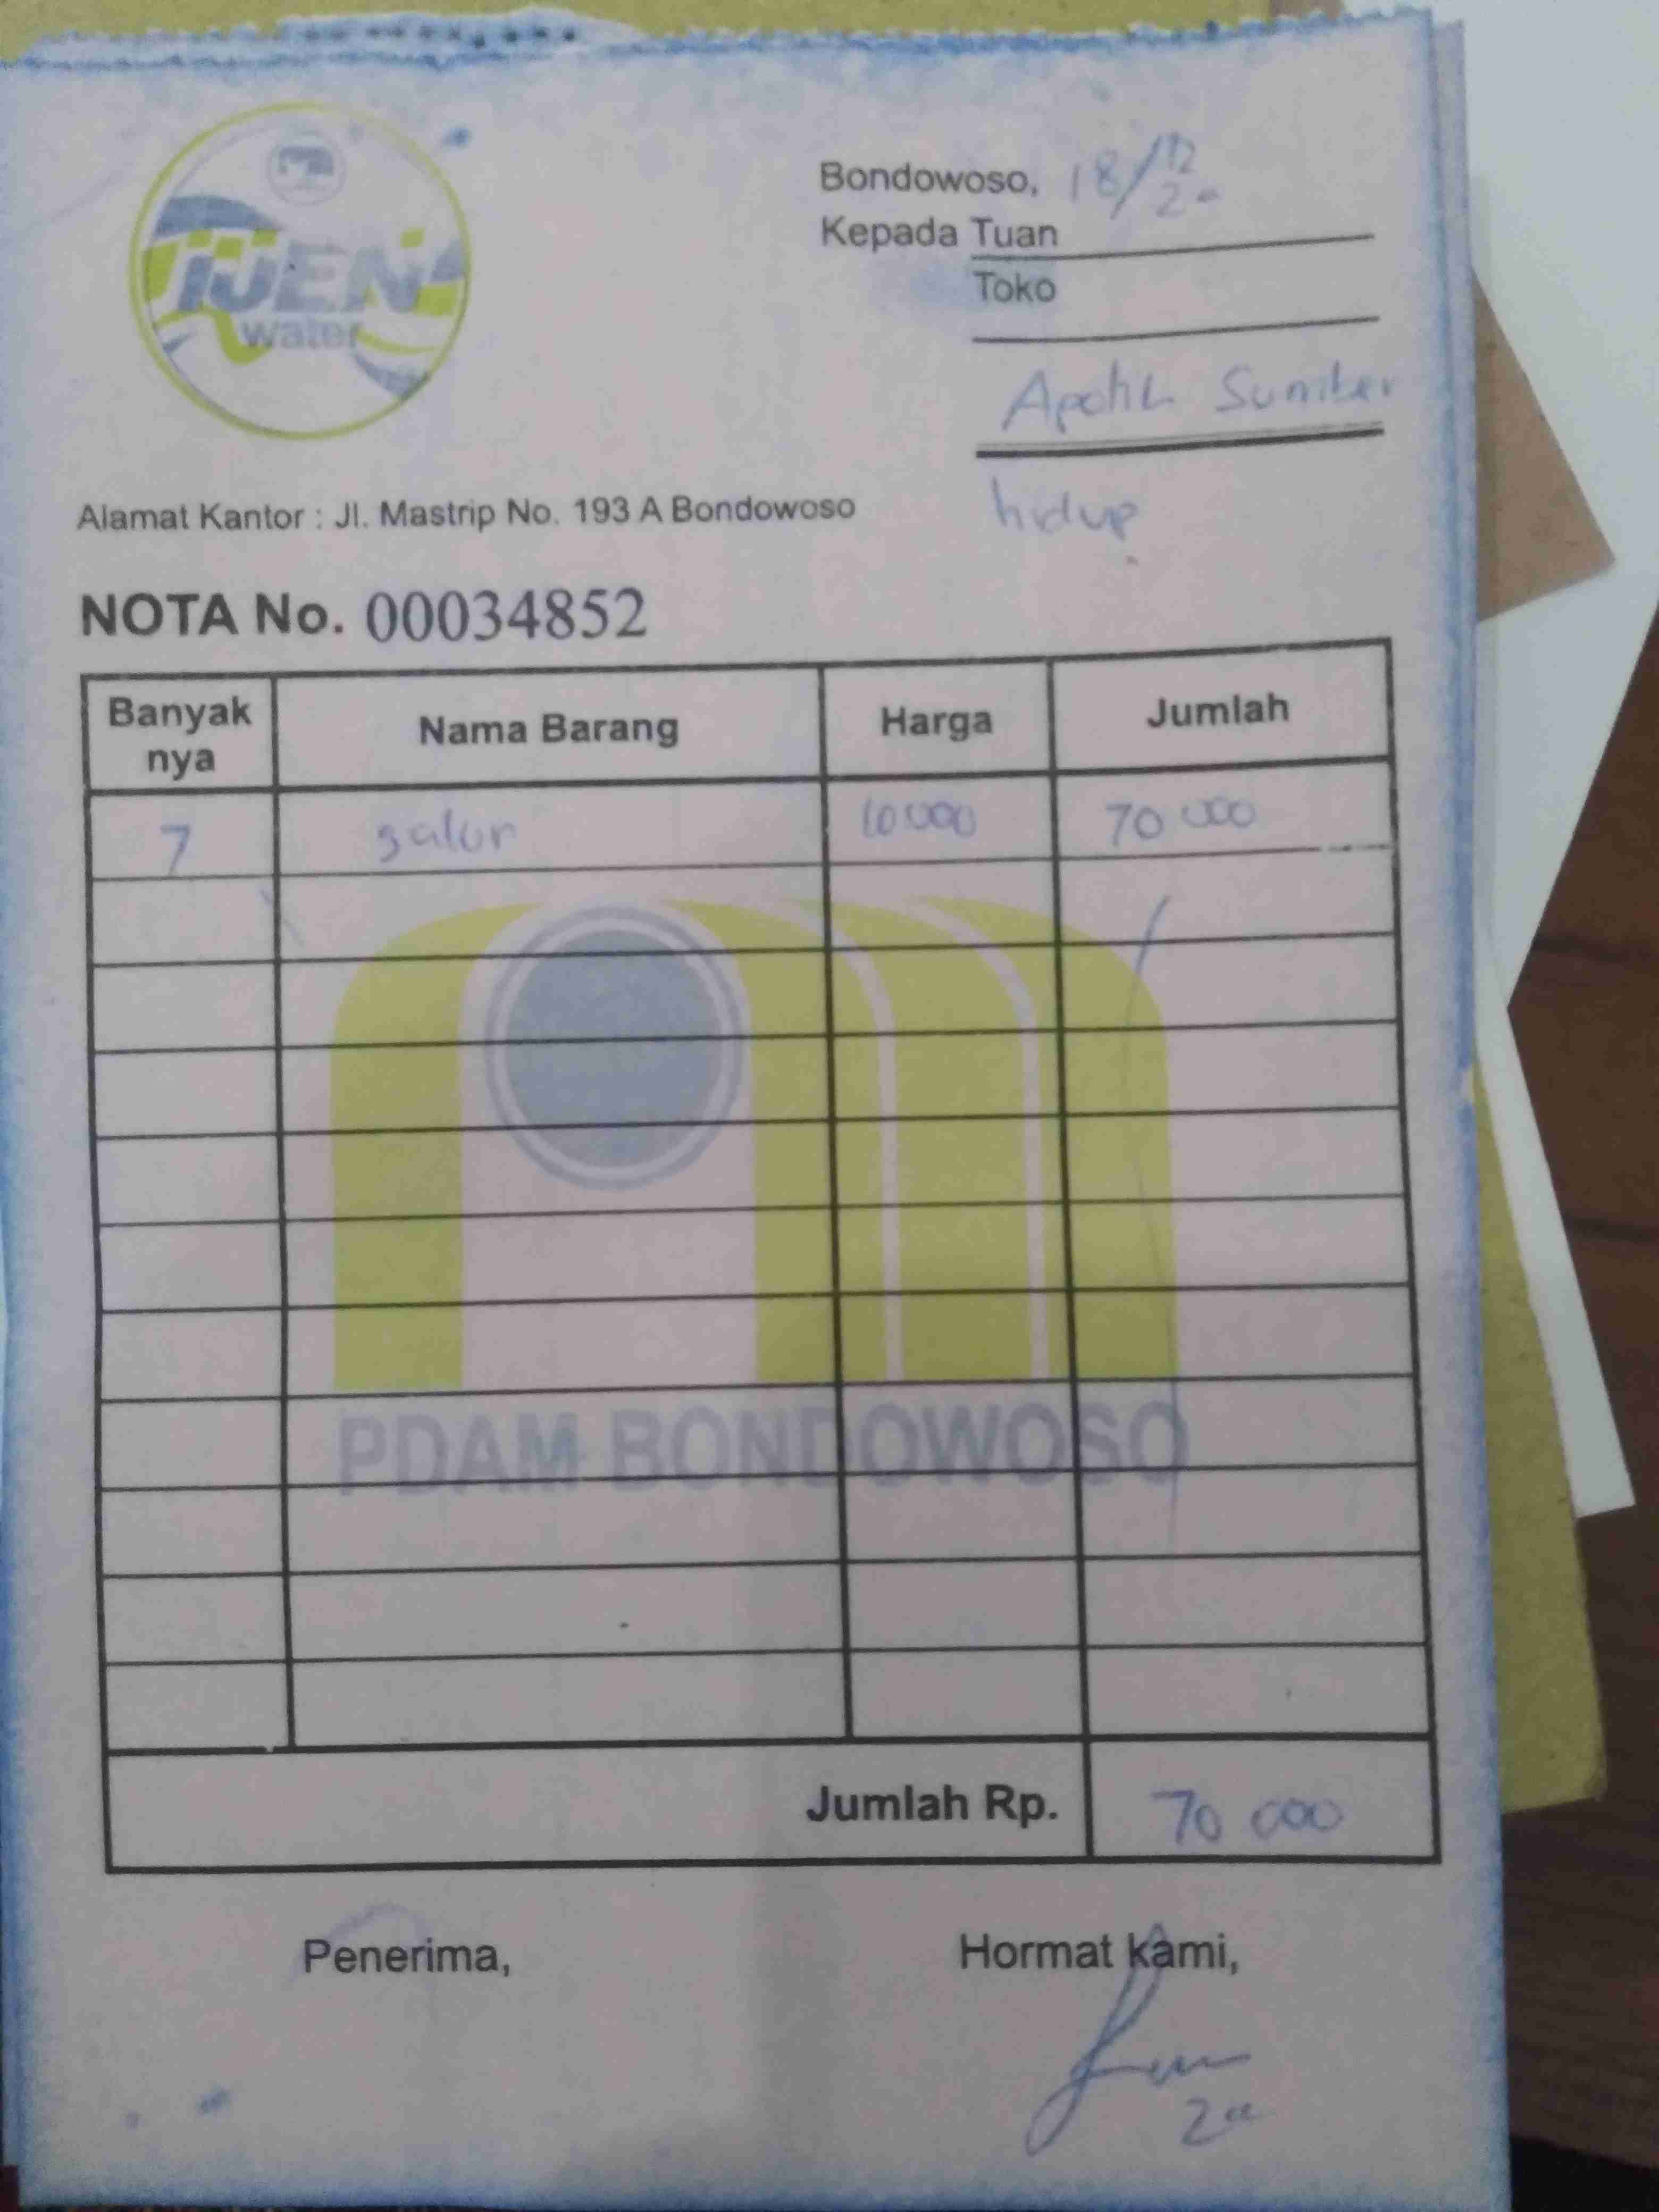 IJEN
water
Bondowoso, 18/12
20
Kepada Tuan
Toko
Apotik Sumber
hidup
Alamat Kantor : Jl. Mastrip No. 193 A Bondowoso
NOTA No. 00034852
Banyak nya Nama Barang Harga Jumlah
7 galon 10 000 70 000
PDAM BONDOWOSO
Jumlah Rp. 70 000
Penerima, Hormat kami,